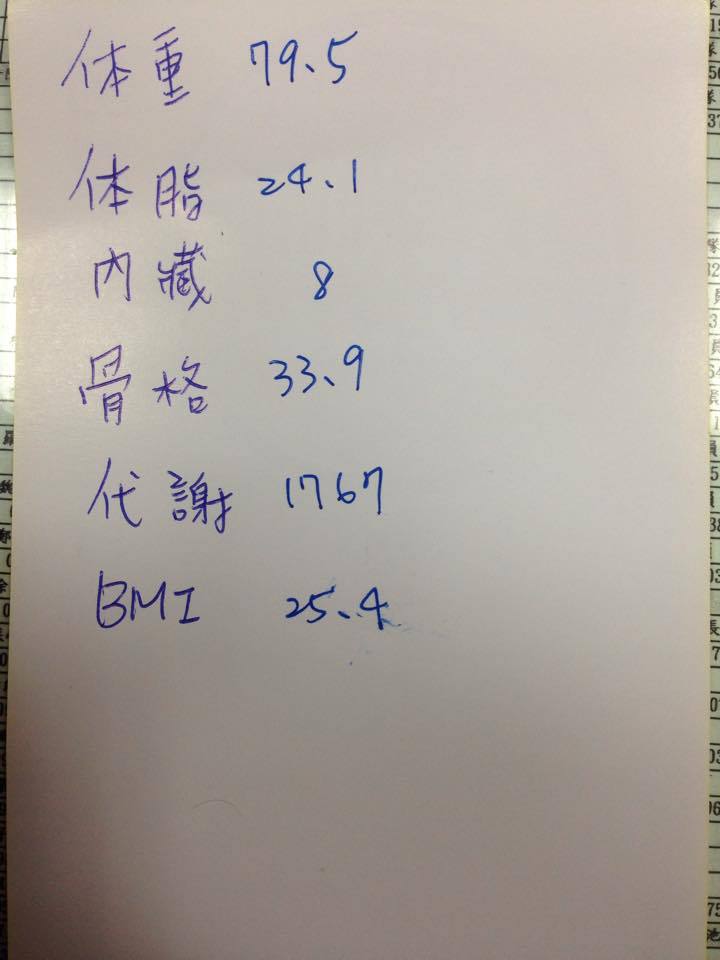 体重 79、5
体脂 24、1
內臟 8
骨格 33、9
代謝 1767
BMI 25、4